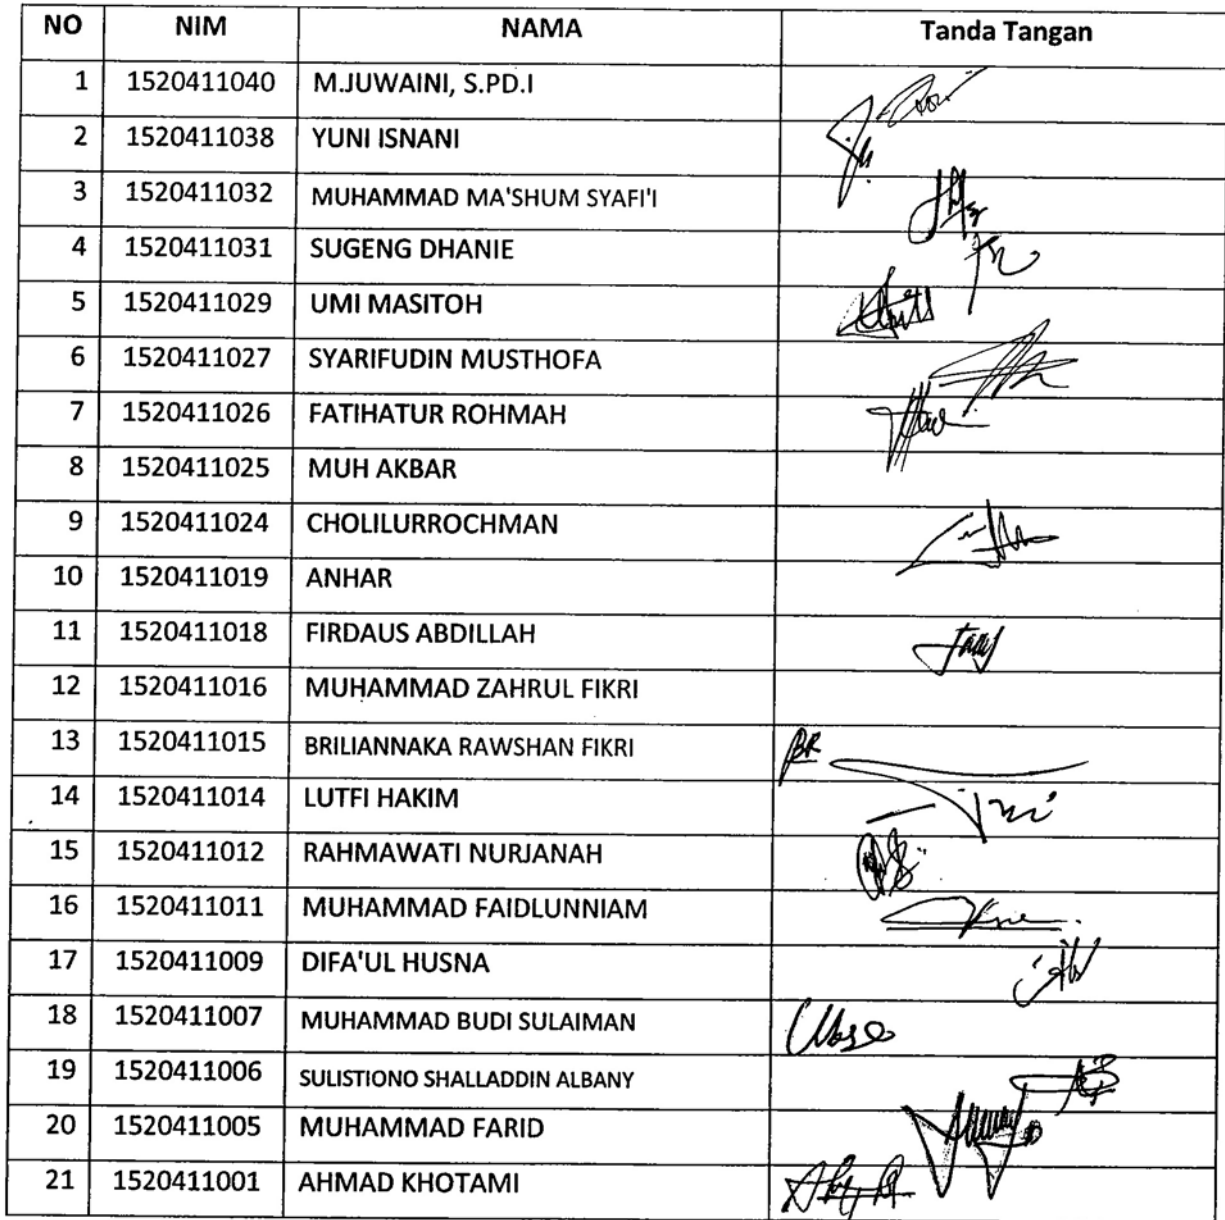 NO NIM NAMA Tanda Tangan
1 1520411040 M.JUWAINI, S.PD.I
2 1520411038 YUNI ISNANI
3 1520411032 MUHAMMAD MA'SHUM SYAFI'I
4 1520411031 SUGENG DHANIE
5 1520411029 UMI MASITOH
6 1520411027 SYARIFUDIN MUSTHOFA
7 1520411026 FATIHATUR ROHMAH
8 1520411025 MUH AKBAR
9 1520411024 CHOLILURROCHMAN
10 1520411019 ANHAR
11 1520411018 FIRDAUS ABDILLAH
12 1520411016 MUHAMMAD ZAHRUL FIKRI
13 1520411015 BRILIANNAKA RAWSHAN FIKRI BR
14 1520411014 LUTFI HAKIM
15 1520411012 RAHMAWATI NURJANAH
16 1520411011 MUHAMMAD FAIDLUNNIAM
17 1520411009 DIFA'UL HUSNA
18 1520411007 MUHAMMAD BUDI SULAIMAN
19 1520411006 SULISTIONO SHALLADDIN ALBANY
20 1520411005 MUHAMMAD FARID
21 1520411001 AHMAD KHOTAMI